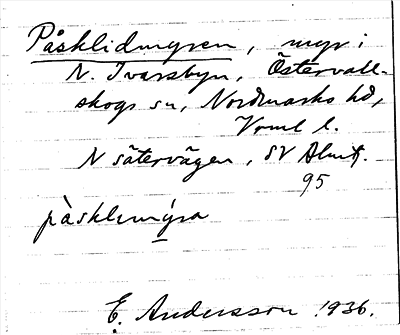 Påsklidmyren, myr i
N. Ivarsbyn, Östervall-
skogs sn, Nordmarks hd,
Vrml l.
N sätervägen, SV
95
påsklemýra
E. Andersson 1936.